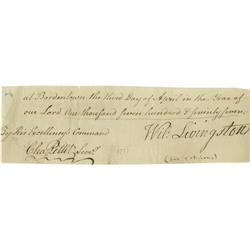 at Bordentown the third Day of April in the Year of
our Lord One thousand seven hundred & seventy seven.
By His Excellency's Command
Wil: Livingston
Cha. Pettit Secry.
1777